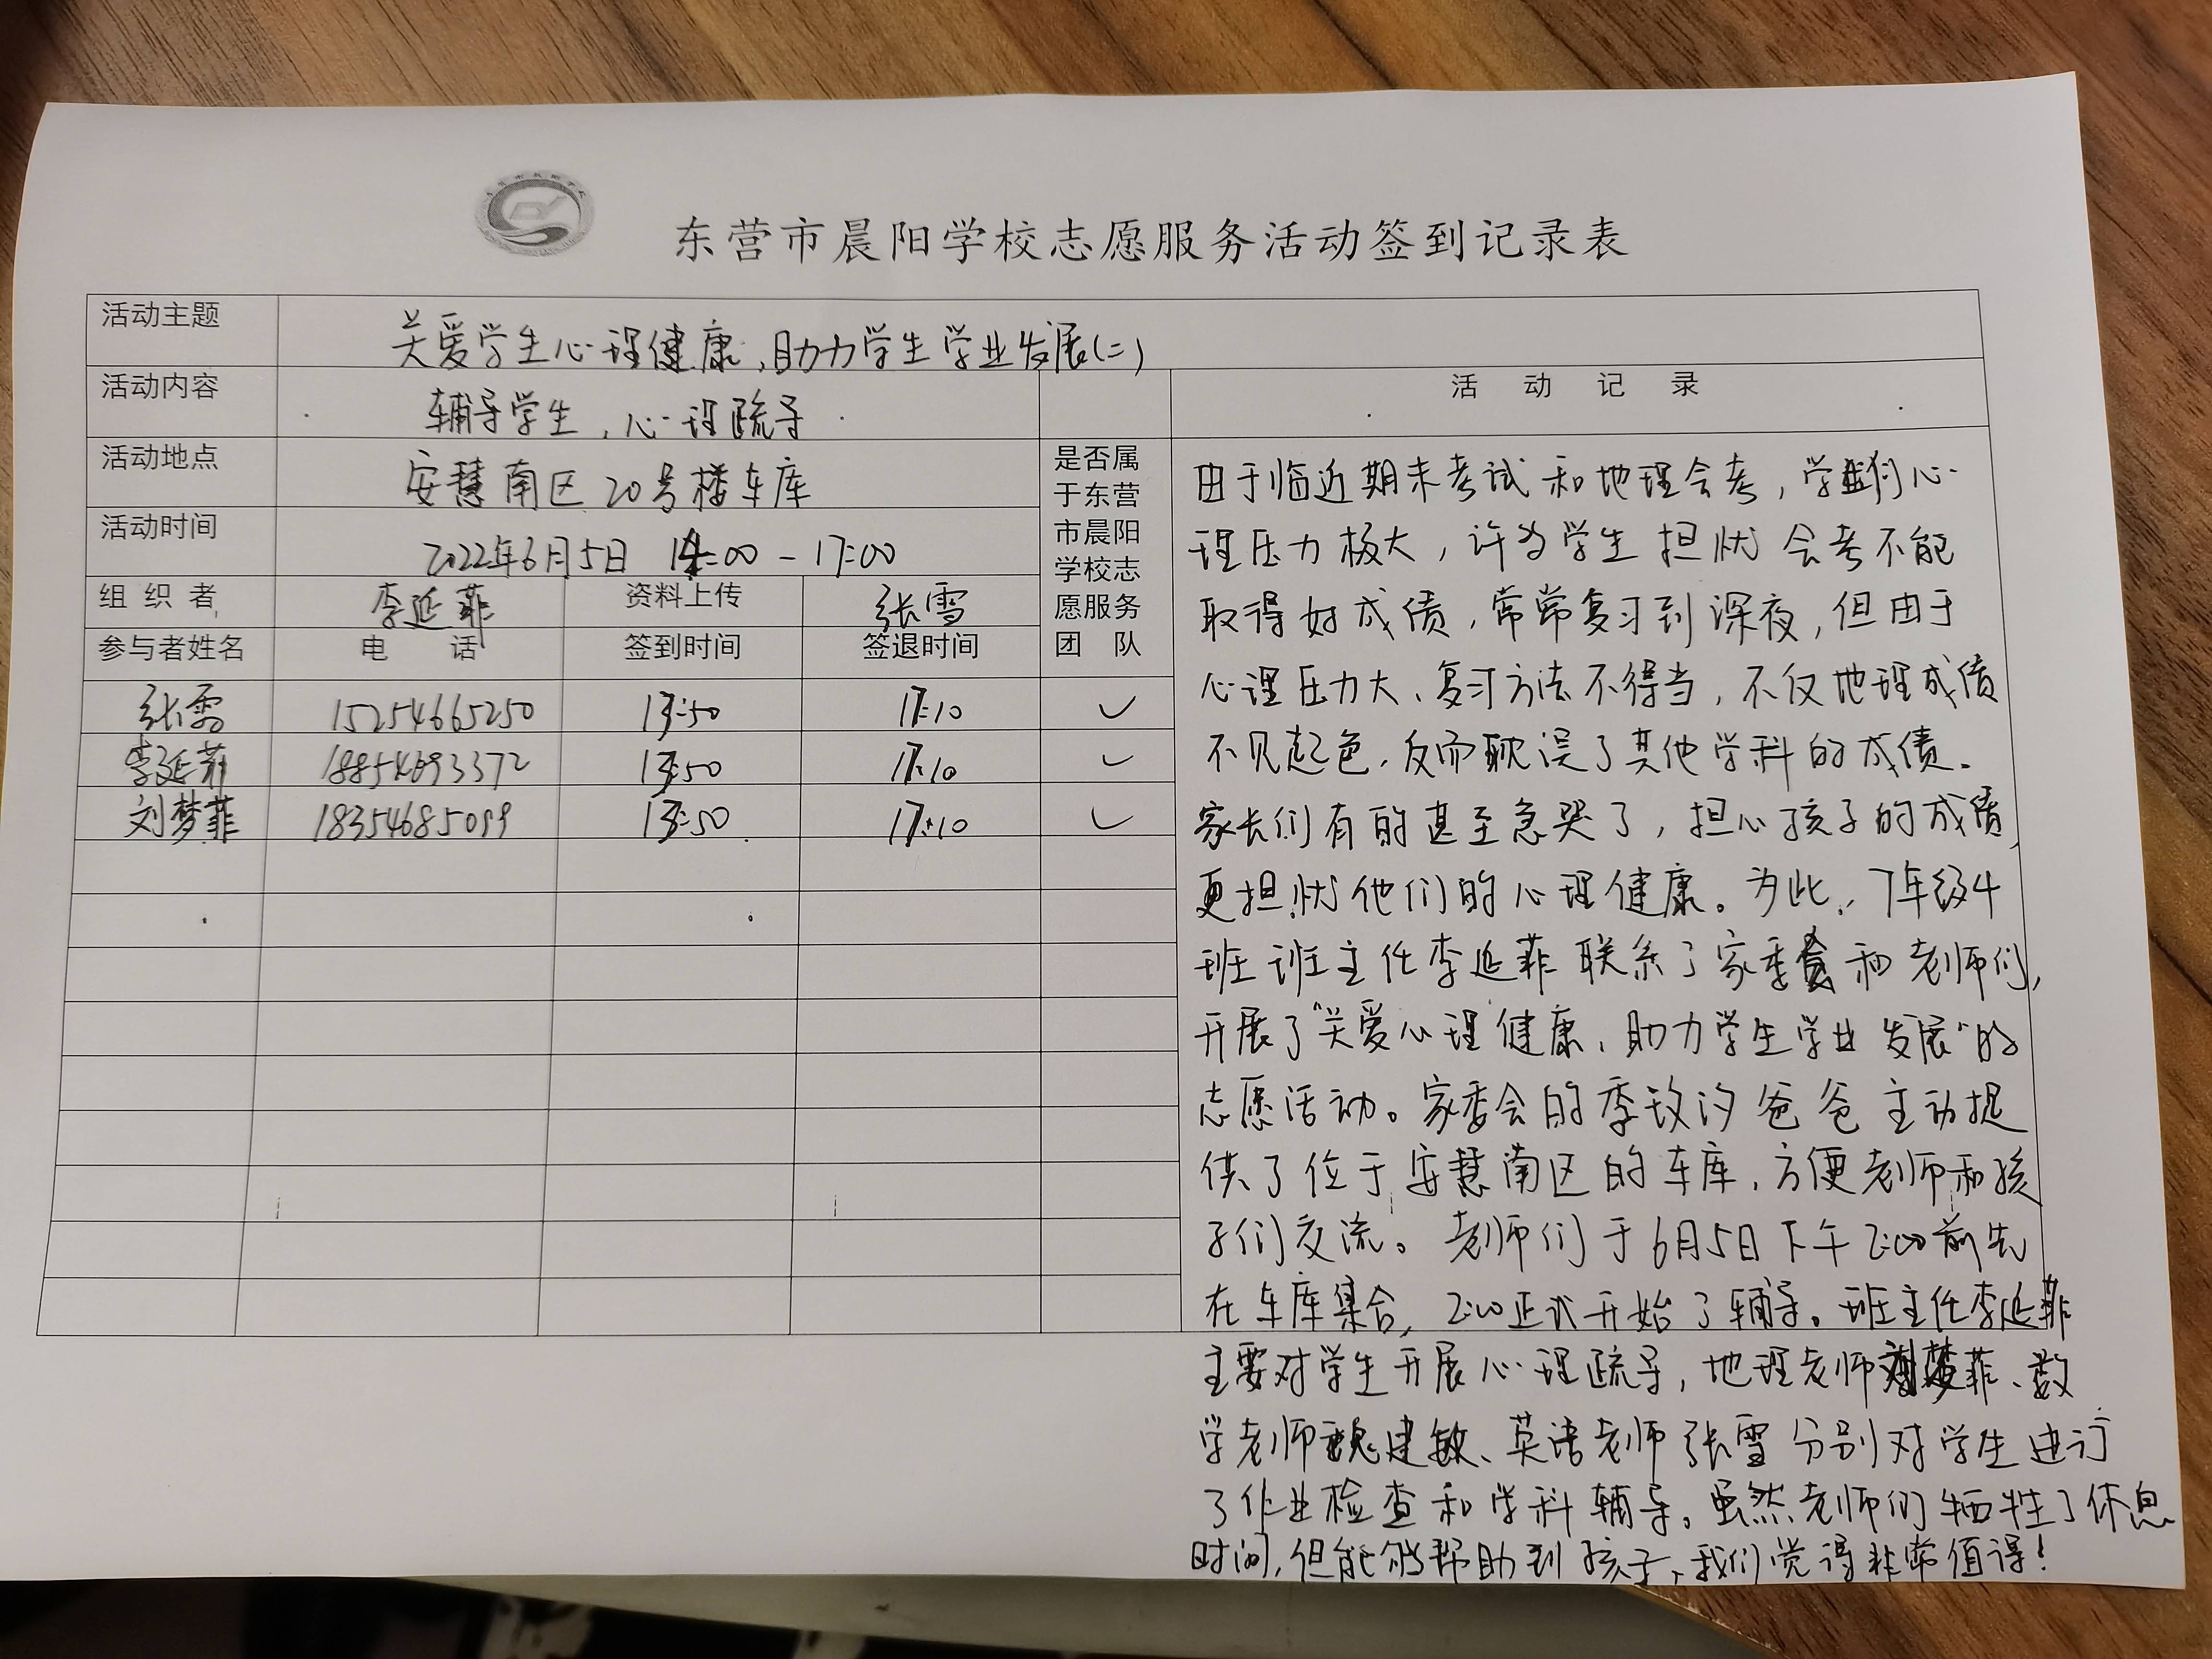 东营市晨阳学校志愿服务活动签到记录表
活动主题 关爱学生心理健康,助力学生学业发展(二)
活动内容 辅导学生,心理疏导
活动地点 安慧南区20号楼车库
活动时间 2022年6月5日 14:00-17:00
组织者 李延菲 资料上传 张雪
参与者姓名 电话 签到时间 签退时间
是否属
于东营
市晨阳
学校志
愿服务
团队
张雪 15254665250 13:50 17:10 ✓
李延菲 18854693372 13:50 17:10 ✓
刘梦菲 18354685099 13:50 17:10 ✓
活动记录
由于临近期末考试和地理会考,学生们心
理压力极大,许多学生担忧会考不能
取得好成绩,常常复习到深夜,但由于
心理压力大、复习方法不得当,不仅地理成绩
不见起色,反而耽误了其他学科的成绩。
家长们有的甚至急哭了,担心孩子的成绩,
更担忧他们的心理健康。为此,7年级4
班班主任李延菲联系了家委会和老师们,
开展了“关爱心理健康,助力学生学业发展”的
志愿活动。家委会的季玫汐爸爸主动提
供了位于安慧南区的车库,方便老师和孩
子们交流。老师们于6月5日下午2:00前先
在车库集合,2:00正式开始了辅导。班主任李延菲
主要对学生开展心理疏导,地理老师刘梦菲、数
学老师魏建敏、英语老师张雪分别对学生进行
了作业检查和学科辅导。虽然老师们牺牲了休息
时间,但能够帮助到孩子,我们觉得非常值得!